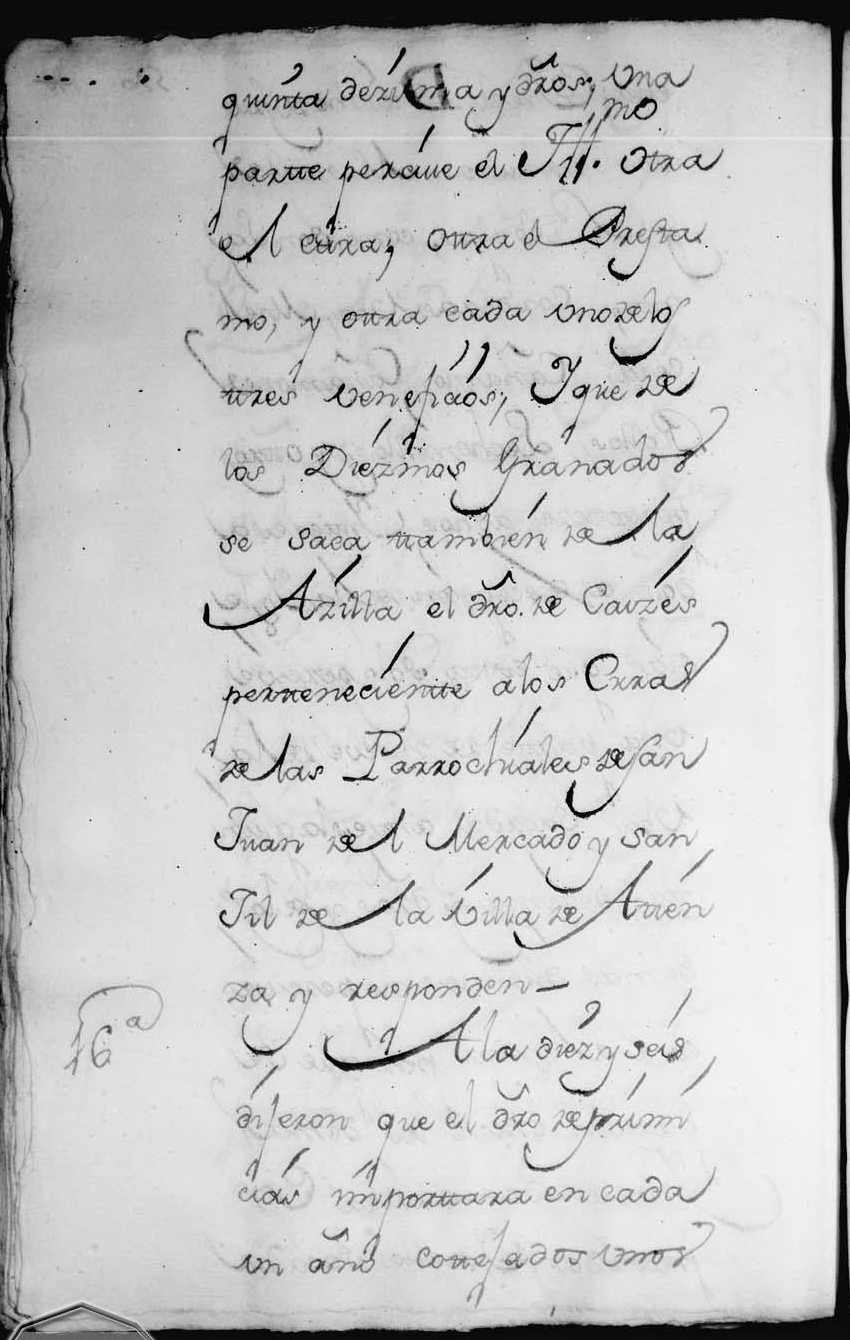 quinta dezima y dros, una
partte perziue el Ill.mo otra
el cura; ottra el Presta
mo, y ottra cada uno de los
ttres venefizios; Y que de
los Diezmos Granados
se saca ttambien de la
Azilla el dro. de Caizes
perttenecientte a los Curas
de las Parrochiales de san
Juan de el Mercado y san
Jil de la Villa de Attien
za y responden —
16a
A la diez y seis
dijeron que el dro de primi
cias importtara en cada
un año cottejados unos